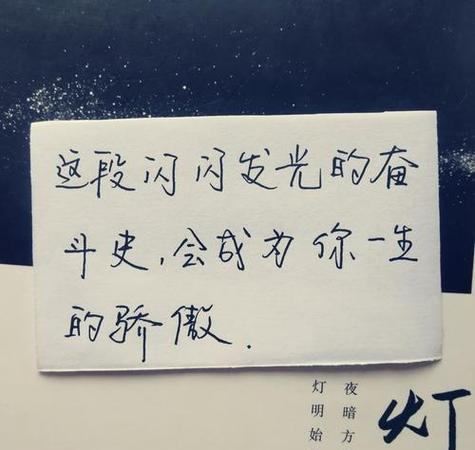 这段闪闪发光的奋
斗史,会成为你一生
的骄傲.
夜暗方
灯明始
灯